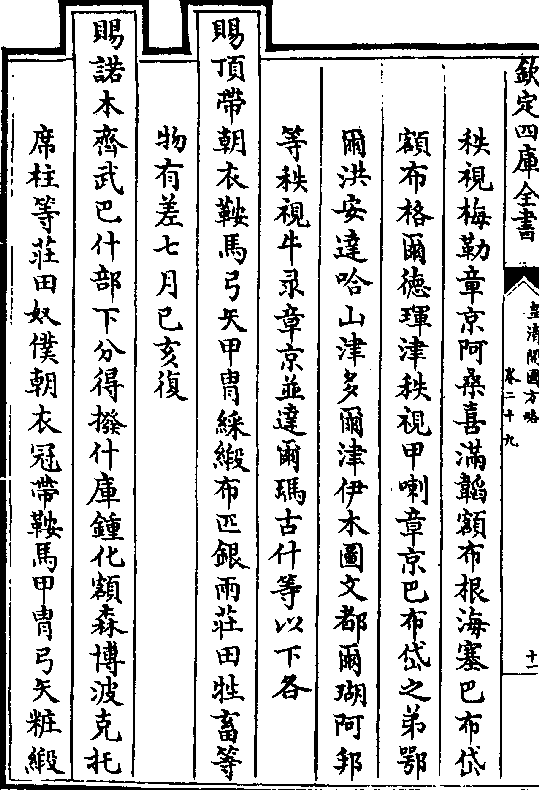 欽定四庫全書
皇清開國方略
卷二十九
十一
秩視梅勒章京阿桑喜滿韜額布根海塞巴布岱
額布格爾德琿津秩視甲喇章京巴布岱之弟鄂
爾洪安達哈山津多爾津伊木圖文都爾瑚阿邦
等秩視牛彔章京並達爾瑪古什等以下各
賜頂帶朝衣鞍馬弓矢甲胄綵緞布匹銀兩莊田牲畜等
物有差七月己亥復
賜諾木齊武巴什部下分得撥什庫鍾化額森博波克托
席柱等莊田奴僕朝衣冠帶鞍馬甲胄弓矢粧緞